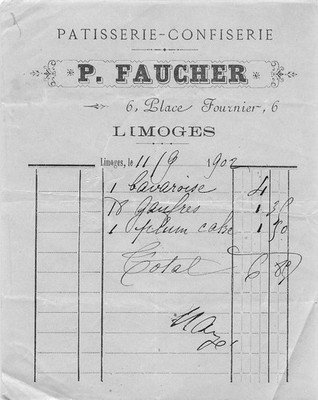 PATISSERIE-CONFISERIE
P. FAUCHER
6, Place Fournier, 6
LIMOGES
Limoges, le 11/9 1902
1 bavaroise 4
18 gaufres 1 35
1 plum cake 1 50
Total 6 85